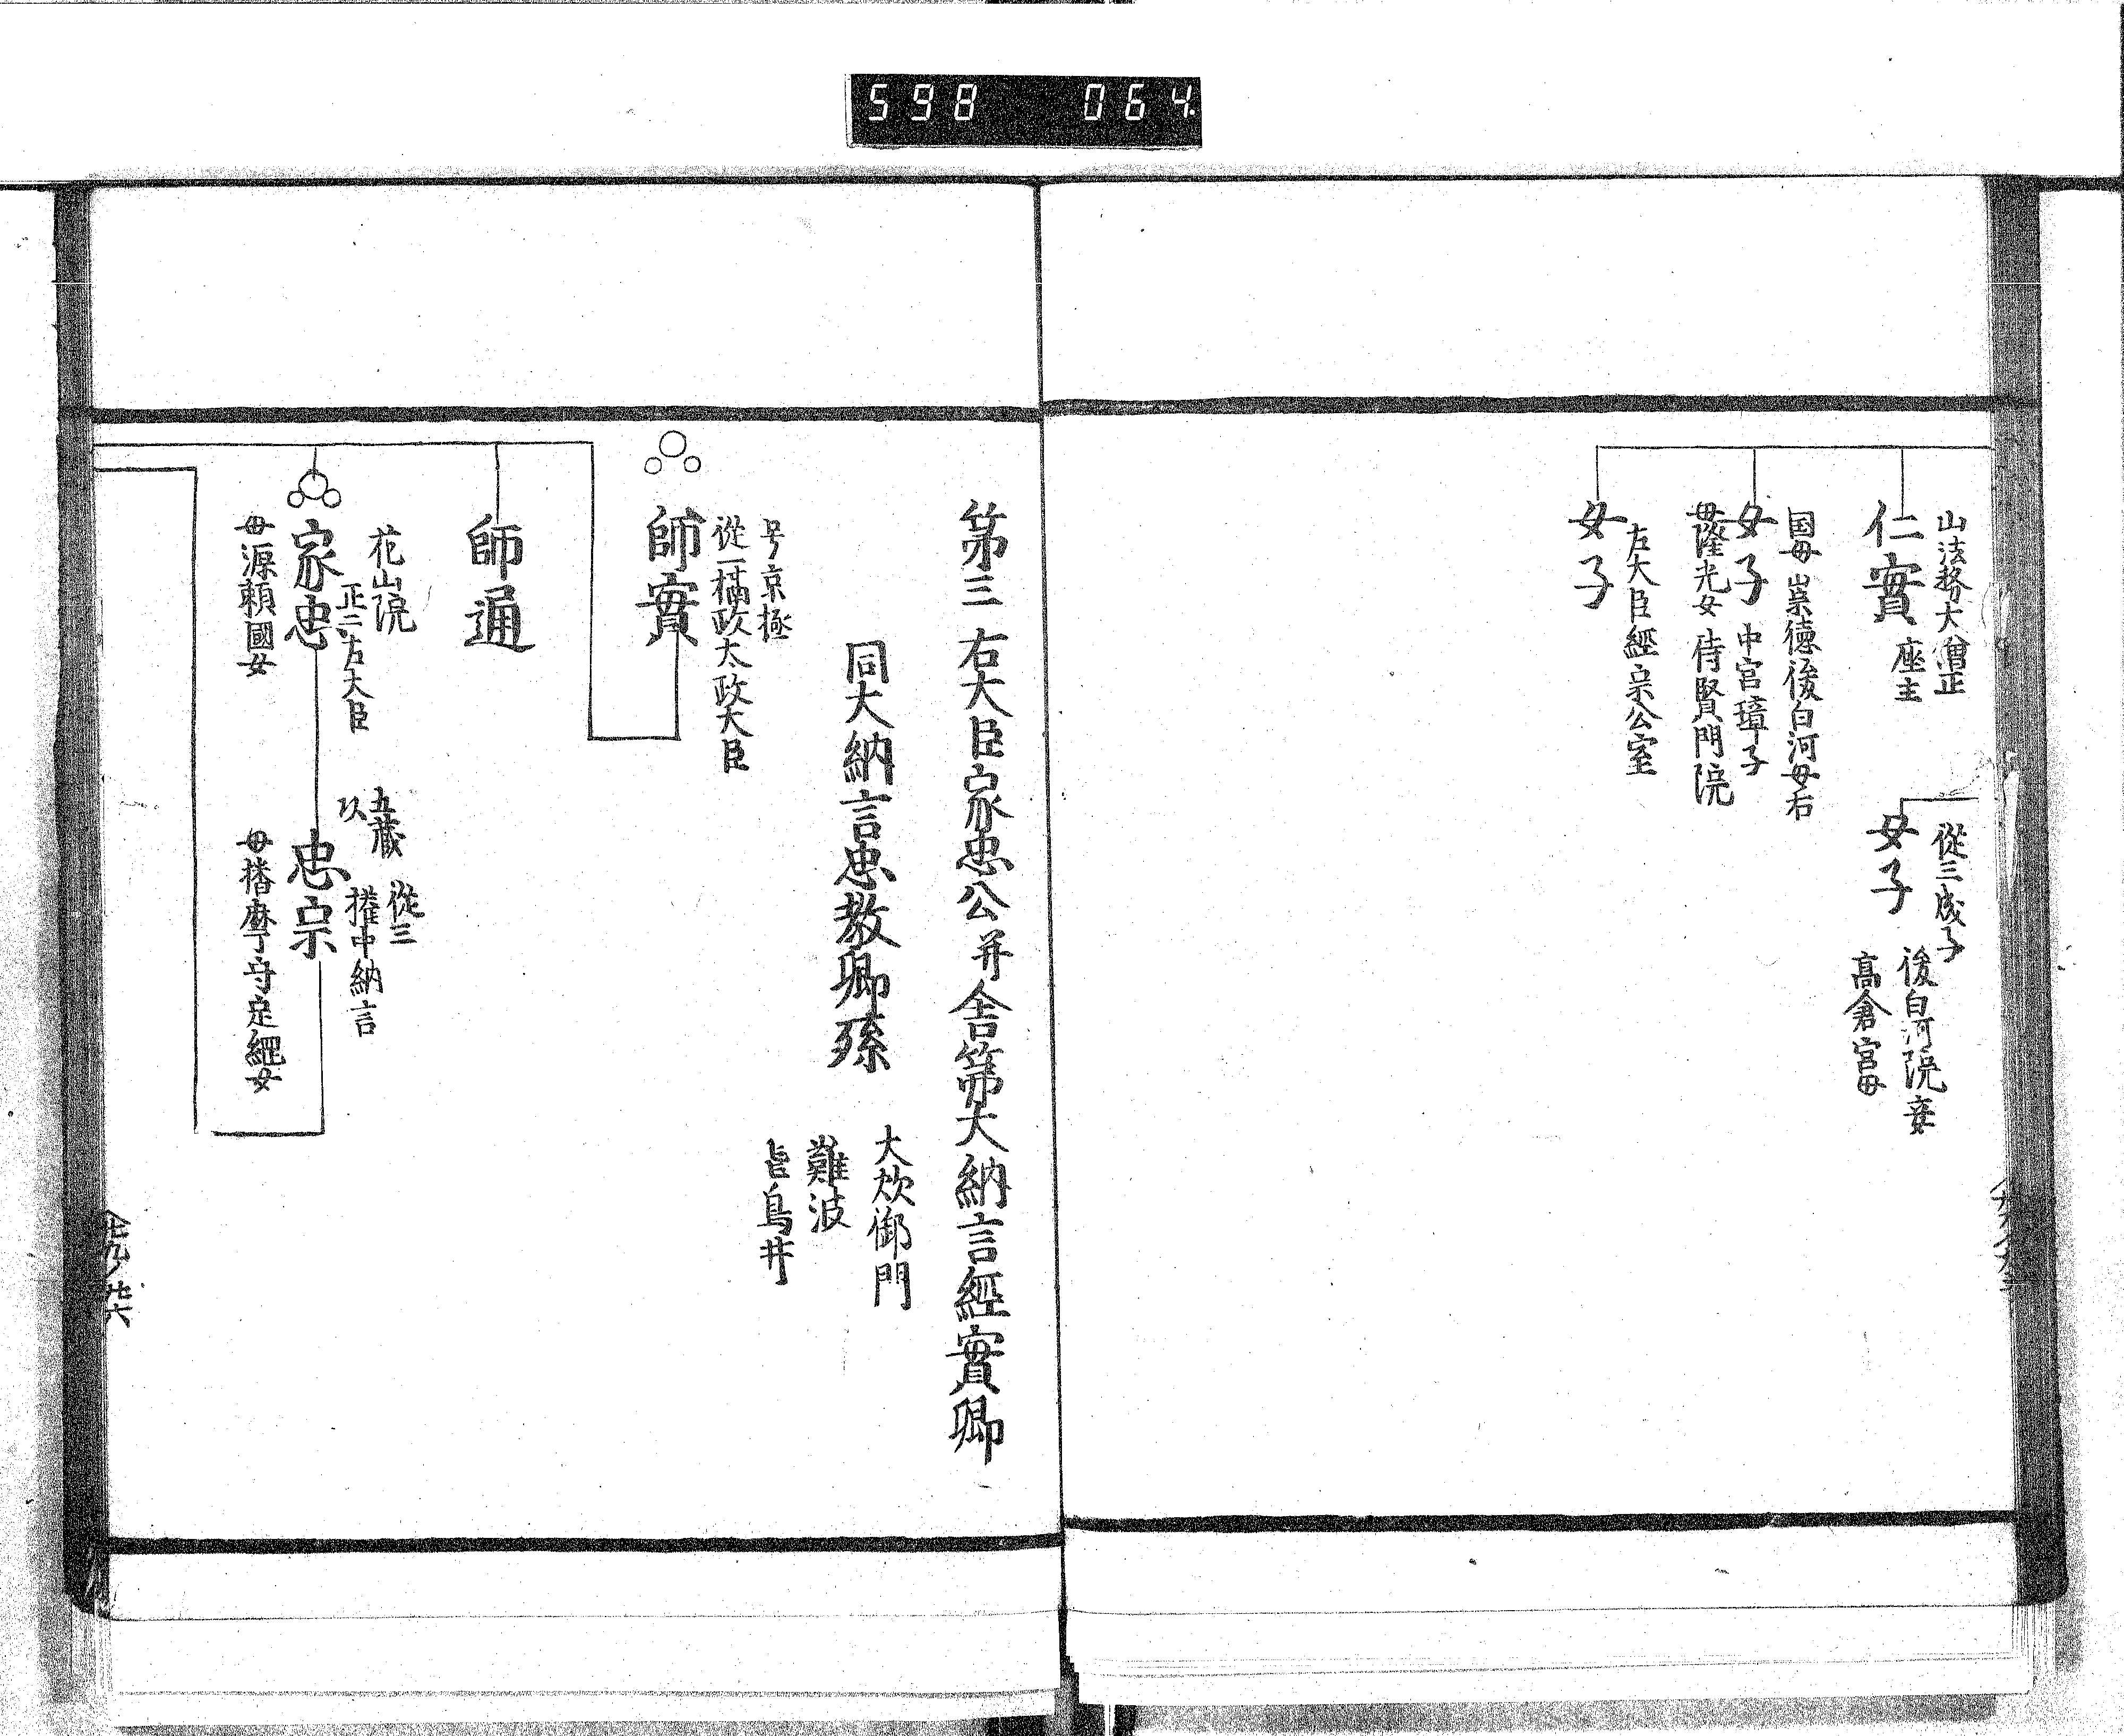 598 064
山法務大僧正
仁實 座主
從三成子
女子 後白河院妾
高倉宮母
国母 崇徳後白河母右
女子 中宮璋子
母隆光女 待賢門院
左大臣經宗公室
女子
第三 右大臣家忠公并舎弟大納言經實卿
同大納言忠教卿孫
大炊御門
難波
飛鳥井
号京極
從一 攝政太政大臣
師實
師通
花山院
正二 右大臣
家忠
母源頼國女
五藏
從三
權中納言
忠宗
母播磨守定綱女